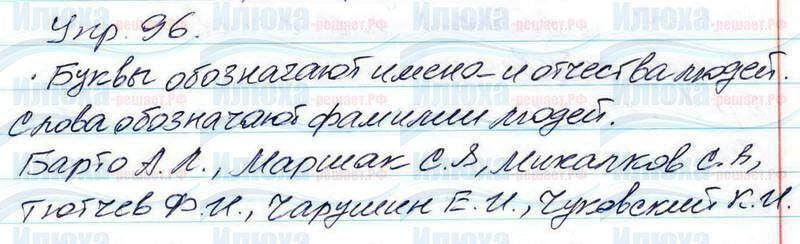 Упр. 96.
Буквы обозначают имена и отчества людей.
Слова обозначают фамилии людей.
Барто А. Л., Маршак С. Я, Михалков С. В,
Тютчев Ф. И., Чарушин Е. И., Чуковский К. И.